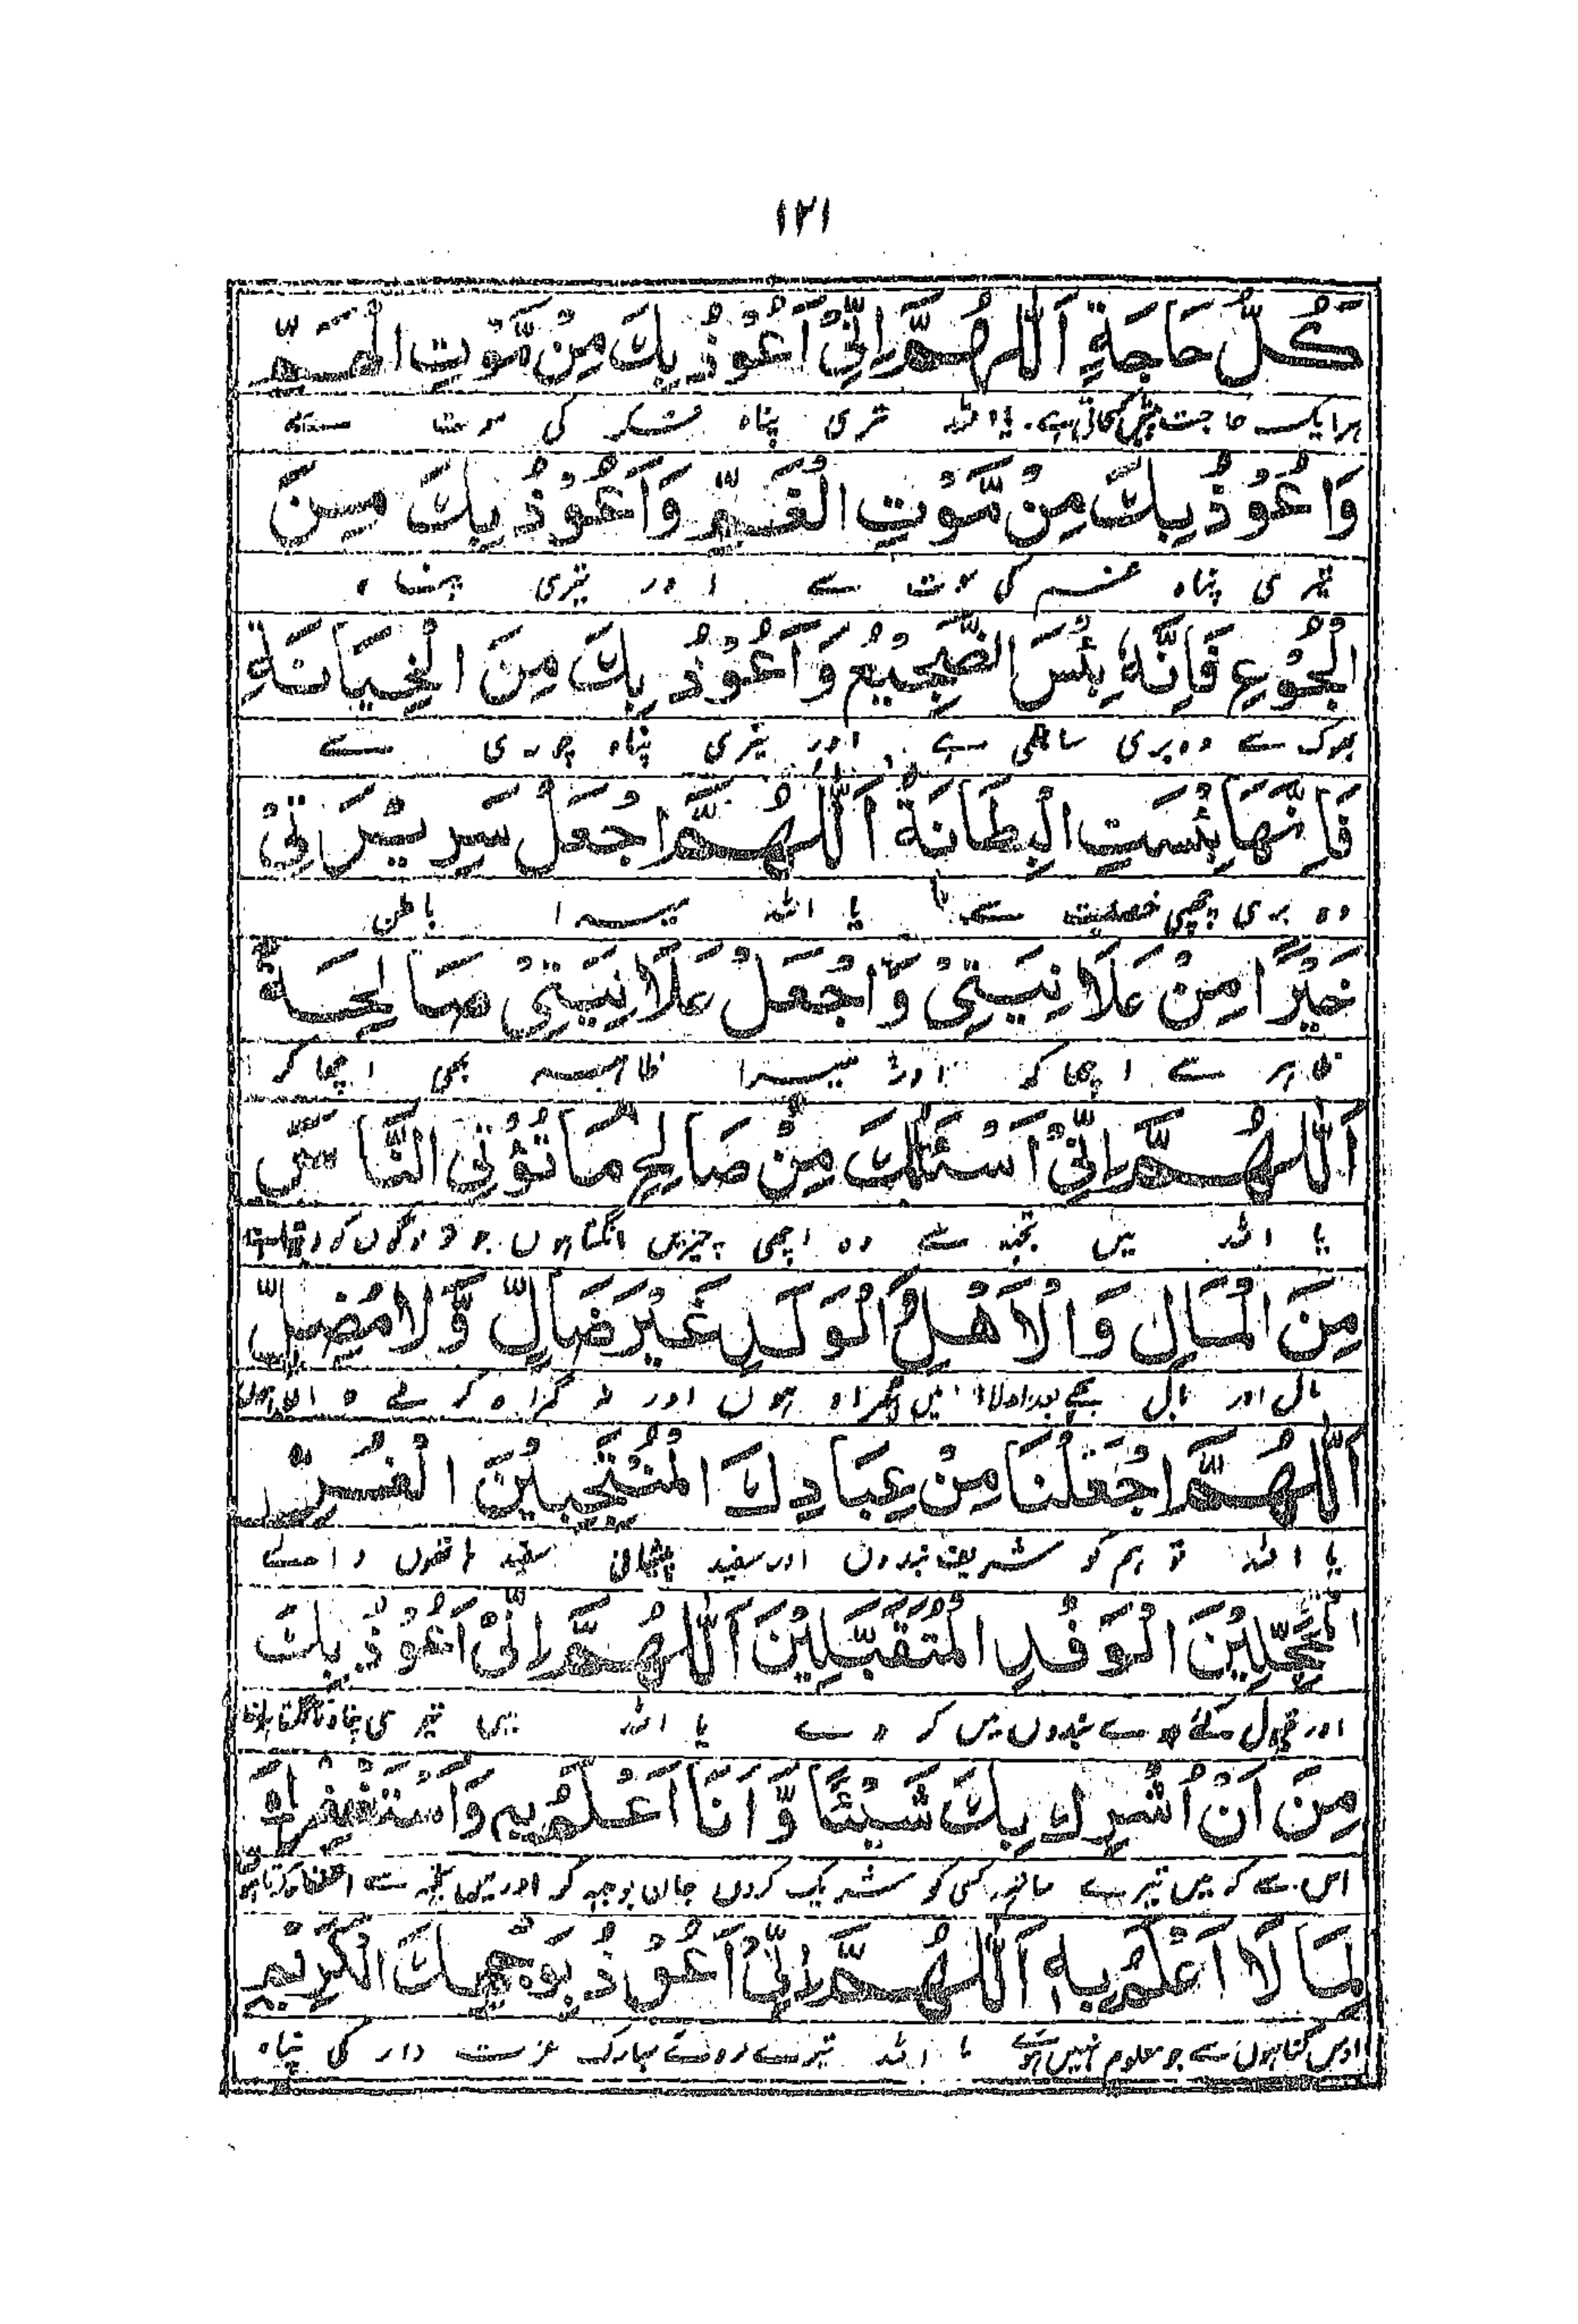 ۱۲۱
كُلُّ حَاجَةٍ اَللّٰهُمَّ اِنِّيْ اَعُوْذُ بِكَ مِنْ مَّوْتِ الْهَمِّ
ہر ایک حاجت تیری پناہ فکر کی موت سے
وَاَعُوْذُ بِكَ مِنْ مَّوْتِ الْغَمِّ وَاَعُوْذُ بِكَ مِنَ
تیری پناہ غم کی موت سے اور تیری پناہ
الْجُوْعِ فَاِنَّهٗ بِئْسَ الضَّجِيْعُ وَاَعُوْذُ بِكَ مِنَ الْخِيَانَةِ
بھوک سے وہ بری ساتھی ہے اور تیری پناہ چوری سے
فَاِنَّهَا بِئْسَتِ الْبِطَانَةُ اَللّٰهُمَّ اجْعَلْ سَرِيْرَتِيْ
وہ بری چھپی خصلت ہے یا اللہ میرا باطن
خَيْرًا مِنْ عَلَانِيَتِيْ وَّاجْعَلْ عَلَانِيَتِيْ صَالِحَةً
ظاہر سے اچھا کر اور میرا ظاہر بھی اچھا کر
اَللّٰهُمَّ اِنِّيْ اَسْئَلُكَ مِنْ صَالِحِ مَا تُؤْتِي النَّاسَ
یا اللہ میں تجھ سے وہ اچھی چیزیں مانگتا ہوں جو تو لوگوں کو
مِنَ الْمَالِ وَالْاَهْلِ وَالْوَلَدِ غَيْرَ ضَالٍّ وَّلَا مُضِلٍّ
مال اور بچے میں گمراہ ہوں اور نہ گمراہ کرنے
اَللّٰهُمَّ اجْعَلْنَا مِنْ عِبَادِكَ الْمُنْتَخَبِيْنَ الْغُرِّ
یا اللہ تو ہم کو شریف بندوں اور سفید پیشانی سفید ہاتھوں والے
الْمُحَجَّلِيْنَ الْوَفْدِ الْمُتَقَبَّلِيْنَ اَللّٰهُمَّ اِنِّيْ اَعُوْذُ بِكَ
اور قبول کئے ہوے بندوں میں کر دے یا اللہ میں تیری پناہ
مِنَ اَنْ اُشْرِكَ بِكَ شَيْئًا وَّاَنَا اَعْلَمُ بِهٖ وَاَسْتَغْفِرُكَ
اس سے کہ میں تیرے ساتھ کسی کو شریک کروں جان بوجھ کر اور میں تجھ سے
لِمَا لَا اَعْلَمُ بِهٖ اَللّٰهُمَّ اِنِّيْ اَعُوْذُ بِوَجْهِكَ الْكَرِيْمِ
اوس گناہوں سے جو معلوم نہیں یا اللہ تیرے روئے مبارک عزت دار کی پناہ